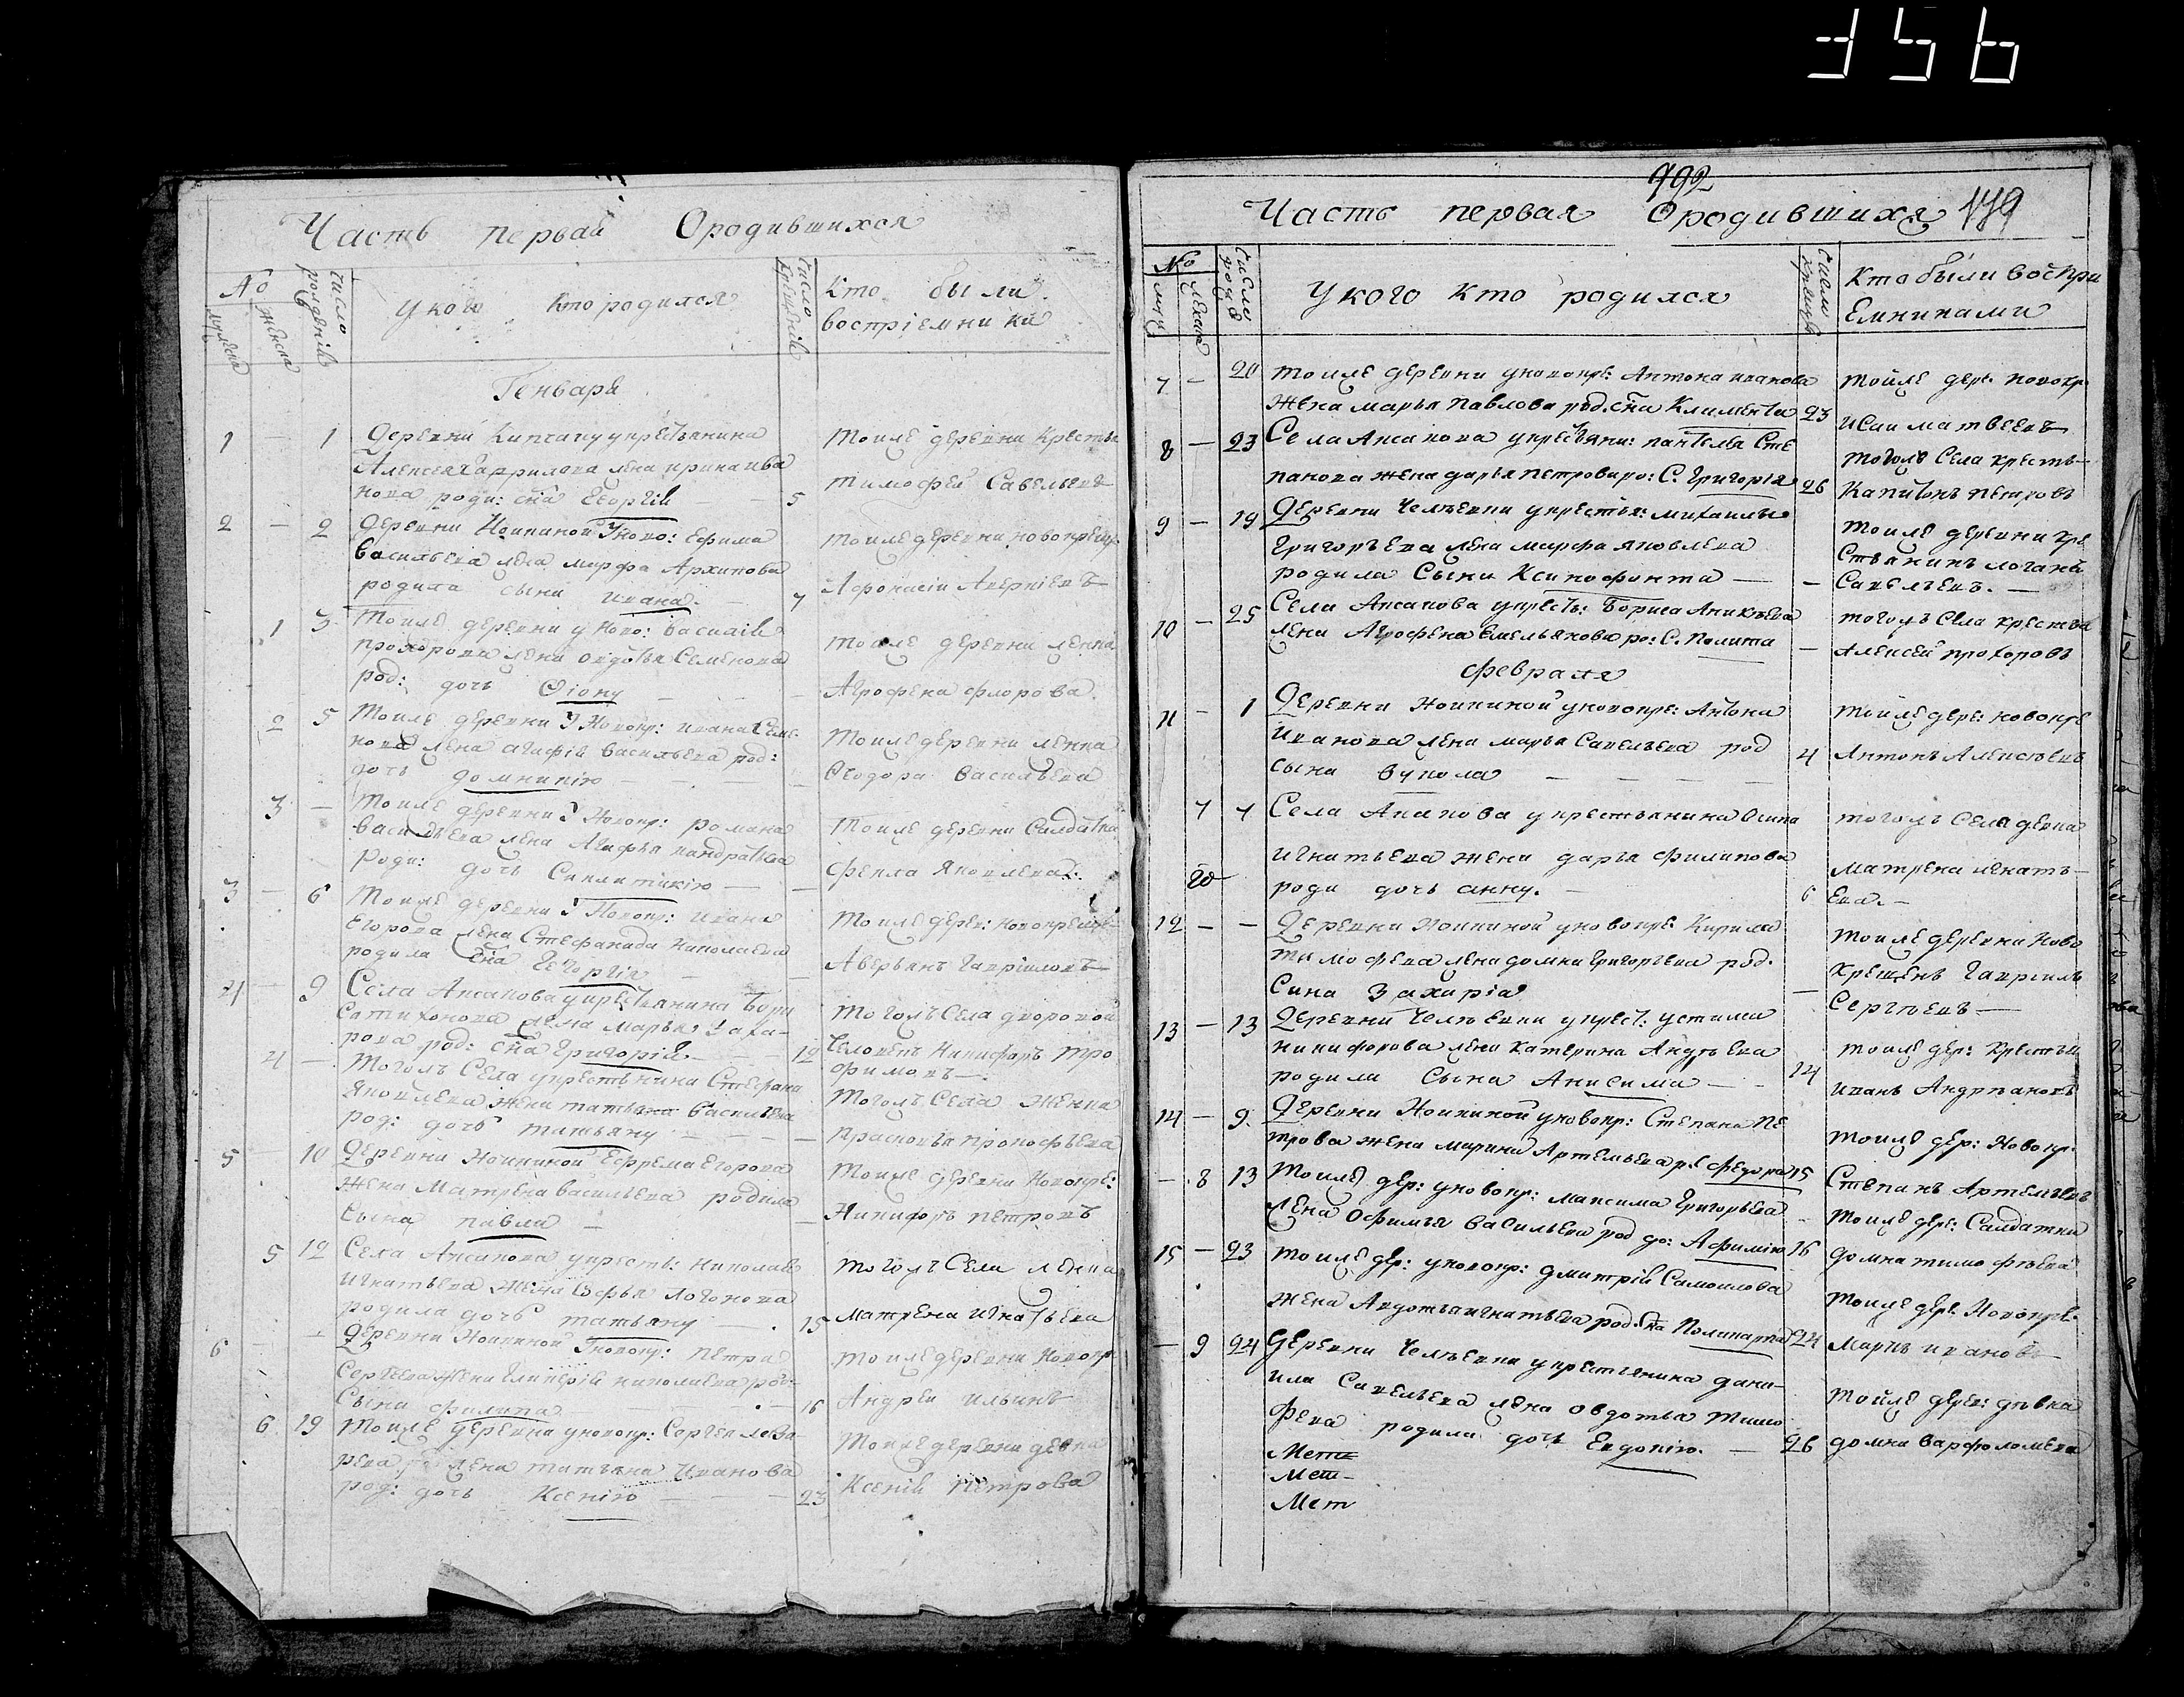 356
Часть первай О родившихся
No
мужеска
женска
число рождения
У кого кто родился
число крещения
Кто были
воспріемники
Генварь
1 1 Деревни Кипчагу у крестьянина
Алексея Гаврилова жена ирина ива
нова роди: сна Георгія 5
тоиже деревни Кресть
тимофей Савельевъ
2 2 Деревни Ноипиной У ново: Ефима
Васильева жена марфа Архипова
родила сына ивана. 7
тоиже деревни новокрещ
Афонасіи Аверкіевъ
1 3 Тоиже деревни у Ново: василія
прохорова жена овдотья Семенова
род: дочь Ѳіону
тоиже деревни женка
Агрофена флорова.
2 5 Тоиже деревни У Новокр: ивана Семе
нова жена агафія васильева род:
дочь домникію
Тоиже деревни женка
Ѳеодора васильева
3 Тоиже деревни У Новокр: романа
васильева жена Агафья кандратьева
роди: дочь Синклитикію
Тоиже деревни Салдатка
фекла Яковлева.
3 6 Тоиже деревни У Новокр: ивана
Егорова жена Стефанида николаева
родила сна Геѡргія
Тоиже дерев: новокрещ
Аверьянъ Гавриловъ
4 9 Села Аксакова у крестьянина Бори
са тихонова жена Марья Заха-
рова род: сна Григорія. 12
тогожъ Села дворовой
Человекъ Никифоръ тро
фимовъ.
4 Тогожъ Села у крестьянина Стефана
Яковлева жена татьяна васильева
род: дочь татьяну
Тогожъ Села женка
Прасковья прокофьева
5 10 Деревни Ноипиной Ефрема Егорова
жена Матрена васильева родила
Сына павла
Тоиже деревни Новокре:
Никифоръ петровъ
5 12 Села Аксакова у кресть: николая
Игнатьева жена софья логонова
родила дочь татьяну 15
тогожъ Села женка
матрена игнатьева
6 Деревни Ноипиной У новокр: петра
Сергеева жена Гликерія николаева род:
Сына филипа 16
Тоиже деревни Новокр
Андреи ильинъ
6 19 Тоиже деревни у новокр: Сергея лаза
рева жена татьяна Иванова
род: дочь Ксенію 23
Тоиже деревни девка
Ксенія петрова
992
179
Часть первая О родившихся
No
муж
женска
Число рожд
У кого кто родился
число крещенія
Кто были воспри
емниками
7 20 тоиже деревни у новокре: Антона иванова
жена марья павлова род. сна Климента 23
тоиже дере: новокр
Исаи матвеевъ
8 23 Села Аксакова у крестьяни: пантелея Сте
панова жена дарья петрова ро: С. Григорія 26
тогожъ Села кресть-
Капитонъ петровъ
9 19 Деревни Челъевки у крестья: михаила
Григорьева жена марфа яковлева
родила Сына Ксинофонта
Тоиже деревни кре
стьянинъ логанъ
Савельевъ.
10 25 Села Аксакова у кресть: Бориса Аникьева
жена Агрофена Емельянова ро: С. Полита
тогожъ Села крестья
Алексей прохоровъ
февраля
11 1 Деревни Ноипиной у новокре: Антона
Иванова жена марья Савельева род
сына вукола 4
тоиже дере: новокре
Антонъ Алексеевъ
7 7 Села Аксакова у крестьянина осипа
игнатьева жена дарья филипова
роди дочь анну. 6
тогожъ Села девка
матрена игнать-
ева.
20
12 Деревни Ноипиной у новокре: Кирила
тимофеева жена домна григорьева род.
Сина Захарія
Тоиже деревни Ново
крещенъ Гавриилъ
Сергѣевъ
13 13 Деревни Челъевки у крест: устима
никифорова жена катерина Андреева
родила Сына Анисима 14
тоиже дер: кресть
Иванъ Андріановъ
14 9. Деревни Ноипиной у новокр: Степана пе
трова жена марина Артемьева р: С. федора 15
Тоиже дер: Новокр:
Степанъ Артемьевъ
8 13 тоиже дер: у новокр: максима Григорьева
жена Офимья васильева род до: Афимію 16
тоиже дере: Салдатка
домна тимофеева
15 23 тоиже дер: у новокр: дмитрія Самоилова
жена Авдотья игнатьева род: Сна Поликарпа 24
тоиже дере: Новокре:
Маркъ ивановъ
9 24 Деревни Челъевки у крестьянина дани-
ила Савельева жена овдотья тимо
феева родила дочь Евдокію. 26
тоиже дерев: девка
домна варфоломеева
Мет
Мет
Мет